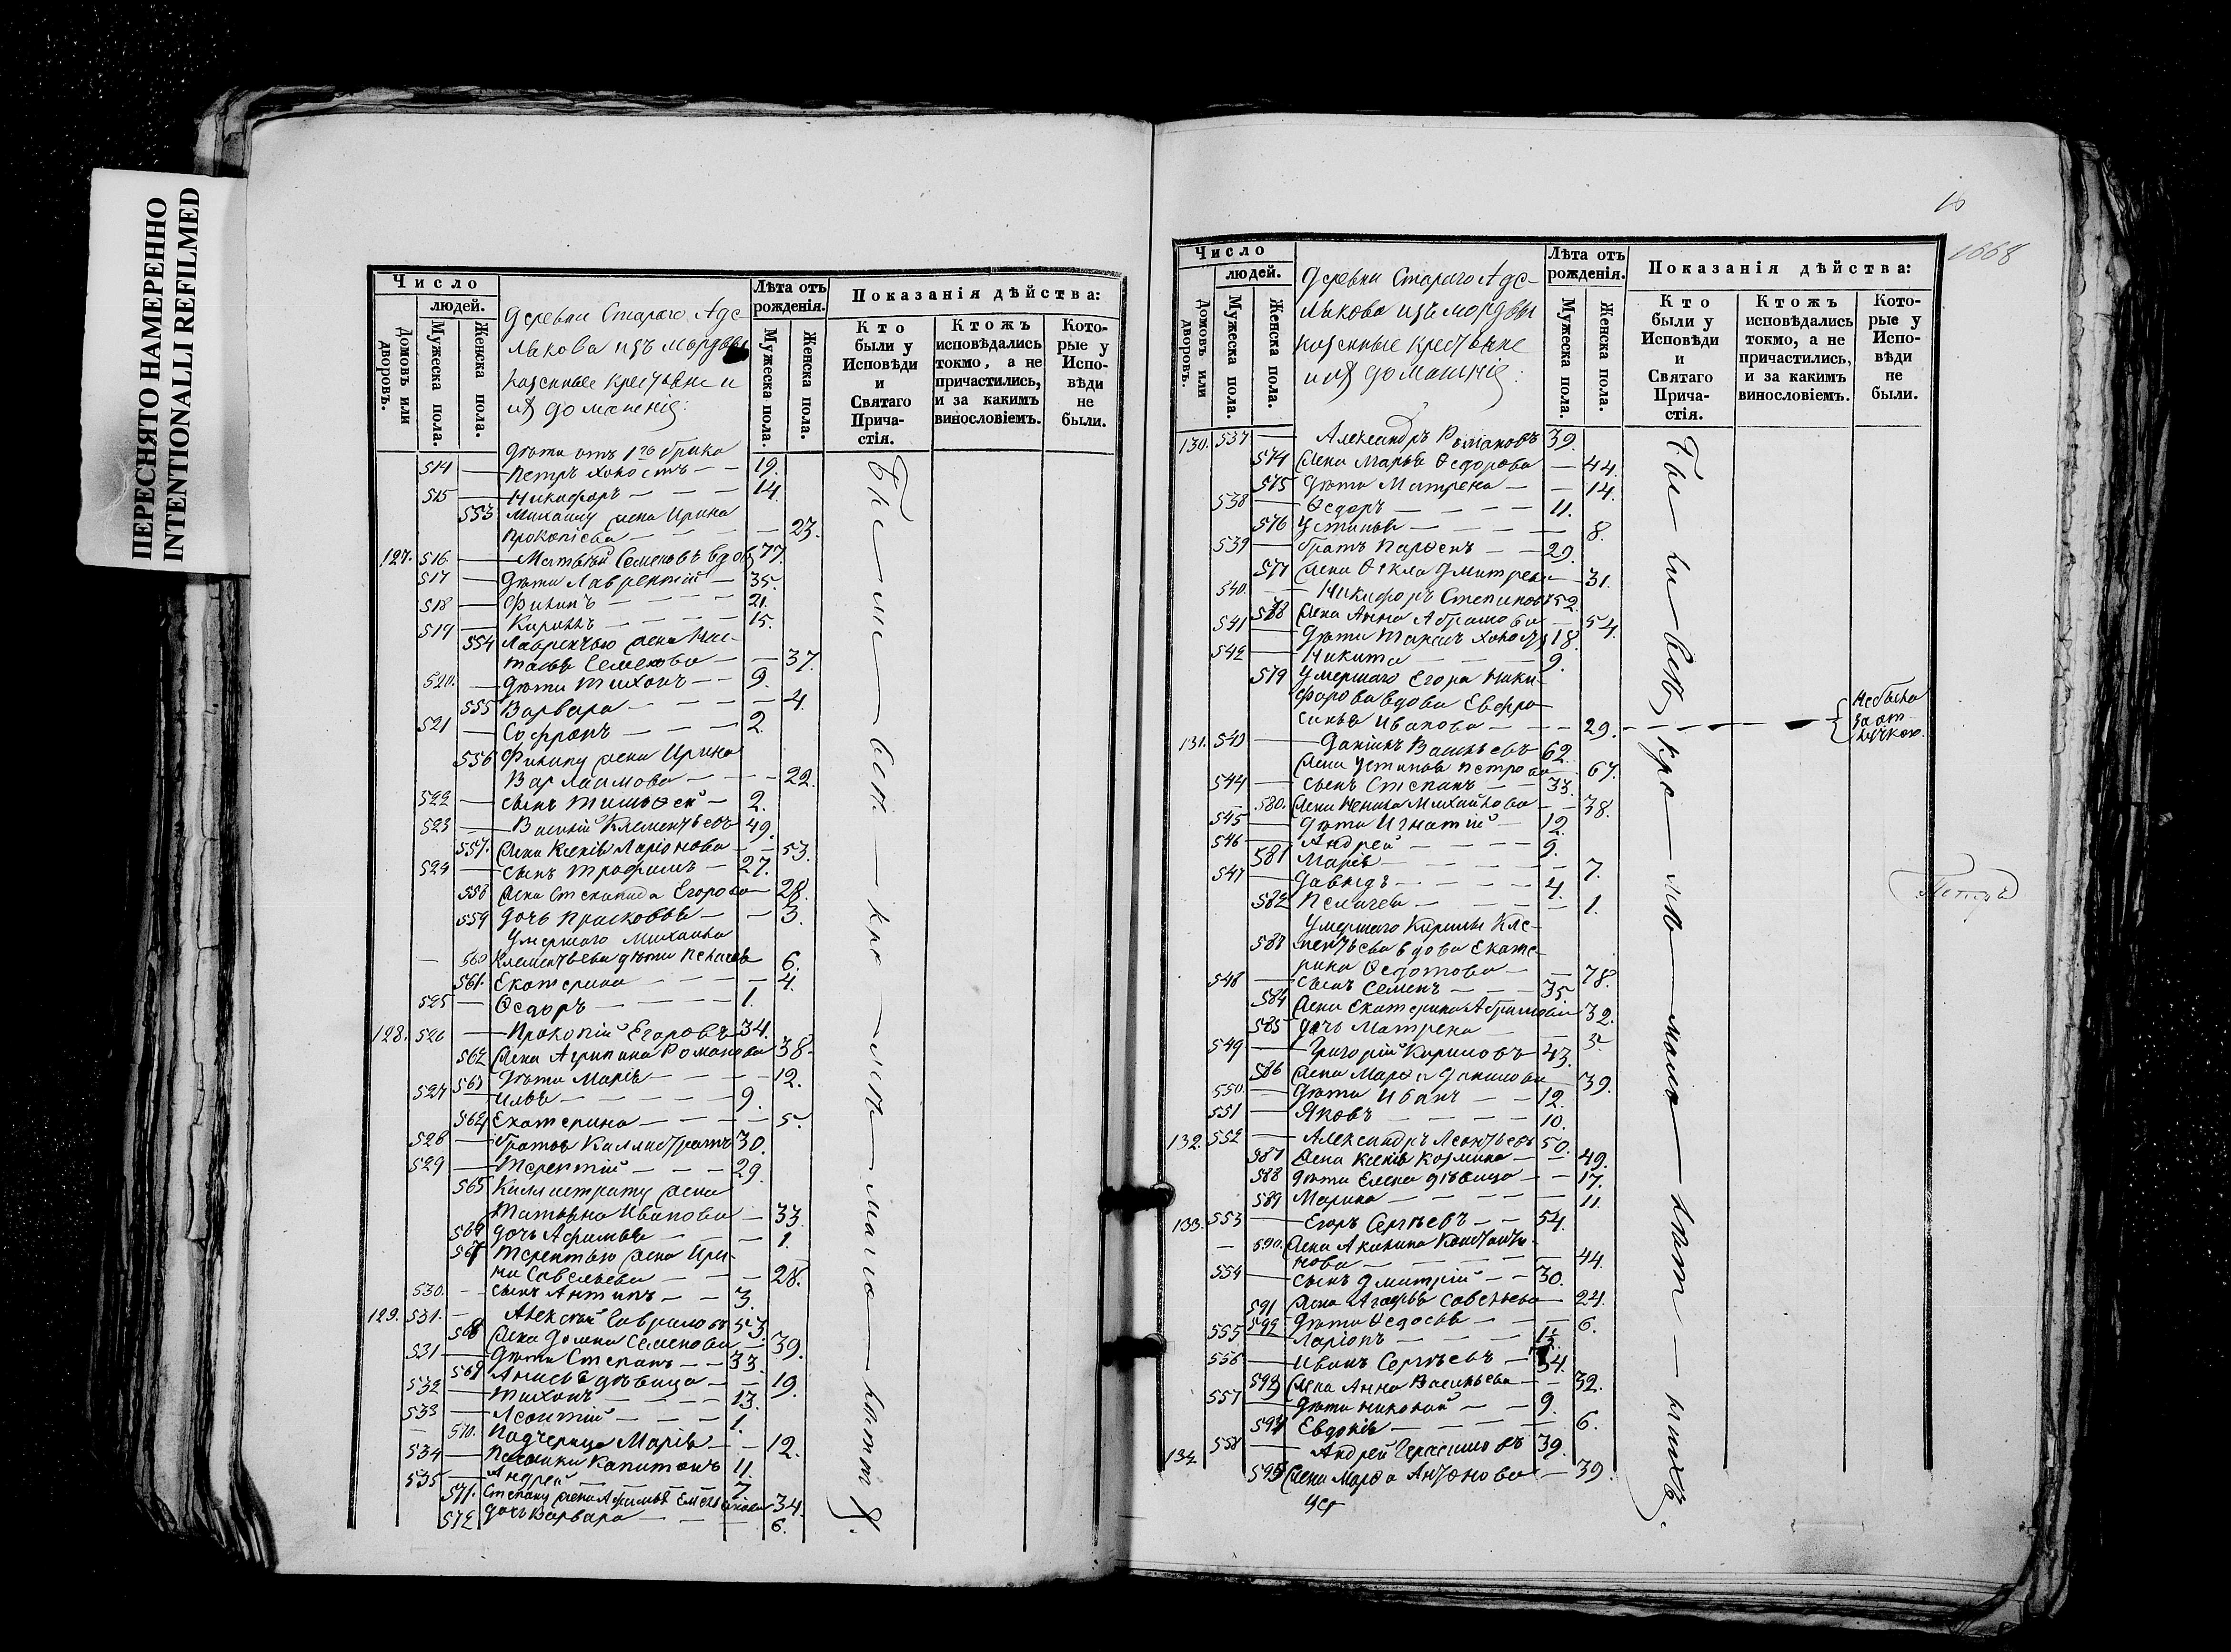 ПЕРЕСНЯТО НАМЕРЕННО
INTENTIONALLI REFILMED
Число
людей.
Домовъ или дворовъ.
Мужеска пола.
Женска пола.
Деревни Стараго Аде-
лякова изъ мордвы
казенные крестьяне и
ихъ домашнія:
Лѣта отъ рожденія.
Мужеска пола.
Женска пола.
Показанія дѣйства:
Кто были у Исповѣди и Святаго Прича-стія.
Ктожъ исповѣдались токмо, а не причастились, и за какимъ винословіемъ.
Кото-рые у Испо-вѣди не были.
Дѣти отъ 1го брака
514 — Петръ холостъ — — 19.
515 — Никифоръ — — — 14.
553 Михаилу жена Ирина
Прокопіева — — — 23.
127. 516 — Матвѣй Семеновъ вдовъ 77.
517 — Дѣти Лаврентій — 35.
518 — Филипъ — — — — 21.
519 — Кирилъ — — — — 15.
554 Лаврентью жена Нас-
тасья Семенова — — 37.
520. — Дѣти Тихонъ — — 9.
555 Варвара — — — — 4.
521 — Софронъ — — — 2.
556 Филипу жена Ирина
Варлаамова — — — 22.
522 — сынъ Тимоѳей — 2.
523 — Василій Клементьевъ 49.
557. жена Ксенія Ларіонова — — 53.
524 — сынъ Трофимъ — 27.
558 жена Степанида Егорова — 28.
559 дочь Прасковья — — 3.
Умершаго Михаила
— 560 Клементьева дѣти Пелагея 6.
561. Екатерина — — — — 4.
525 — Ѳедоръ — — — — 1.
128. 526 — Прокопій Егоровъ 34.
562 жена Агрипина Романова 38.
563 Дѣти Марія — — — — 12.
527 — Илья — — — — — 9.
564 Екатерина — — — — 5.
528 — Братья Каллистратъ 30.
529 — Терентій — — — 29.
565 Каллистрату жена
Татьяна Иванова — 33.
566 дочь Афимья — — — 1.
567 Терентью жена Ири-
на Савельева — — — 28.
530. — сынъ Антипъ — — 3.
129. 531. — Алексѣй Гавриловъ 53.
568 жена Домна Семенова — 39.
531 — Дѣти Степанъ — — 33.
569 Анисья дѣвица — — 19.
532 — Тихонъ — — — — 13.
533 — Леонтій — — — 1.
— 570. Падчерица Марія — — 12.
534 — Пасынки Капитонъ 11.
535 — Андрей — — — 7.
571. Степану жена Афимья 34.
572 дочь Варвара — — — 6.
16
1668
Число
людей.
Домовъ или дворовъ.
Мужеска пола.
Женска пола.
Деревни Стараго Аде-
лякова изъ мордвы
казенные крестьяне
и ихъ домашнія:
Лѣта отъ рожденія.
Мужеска пола.
Женска пола.
Показанія дѣйства:
Кто были у Исповѣди и Святаго Прича-стія.
Ктожъ исповѣдались токмо, а не причастились, и за какимъ винословіемъ.
Кото-рые у Испо-вѣди не были.
130. 537 — Александръ Романовъ 39.
574 жена Марья Ѳедорова — 44.
575 Дѣти Матрена — — 14.
538 — Ѳедоръ — — — — 11.
576 Устинья — — — — 8.
539 — братъ Парѳенъ — — 29.
577 жена Ѳекла Дмитрева — 31.
540. — Никифоръ Степановъ 52.
578 жена Анна Абрамова — 54.
541 — Дѣти холостъ 18.
542 — Никита — — — 9.
579 Умершаго Егора Ники-
форова вдова Евфро-
синья Иванова — — — 29. — — — — Небыла за отлучкою.
131. 543 — Данилъ Васильевъ 62.
жена Устинья Петрова — 67.
544 — сынъ Степанъ — — 33.
580. жена Михайлова — — 38.
545 — Дѣти Игнатій — 12.
546 — Андрей — — — — 9.
581 Марія — — — — — 7.
547 — Давыдъ — — — — 4.
582 Пелагея — — — — 1.
Умершаго Кирилы Кле-
583 ментьева вдова Екате-
рина Ѳедотова — — 78.
548 — сынъ Семенъ — — — 35.
584 жена Екатерина Абрамова 32.
585 дочь Матрена — — 5.
549 — Григорій Кириловъ 43.
586 жена Марѳа Данилова — 39.
550. — Дѣти Иванъ — — 12.
551 — Яковъ — — — — 10.
132. 552 — Александръ Леонтьевъ 50.
587 жена Ксенія Козмина — — 49.
588 Дѣти Елена дѣвица — — 17.
589 Марина — — — — — 11.
133. 553 — Егоръ Сергѣевъ — — 54.
— 590. жена Акилина Константи-
нова — — — — — 44.
554 — сынъ Дмитрій — — 30.
591 жена Агафья Савельева — 24.
592 Дѣти Ѳедосья — — — 6.
555 — Ларіонъ — — — — 1½
556 — Иванъ Сергѣевъ — 34.
593 жена Анна Васильева — — 32.
557 — Дѣти Николай — — 9.
594 Евдокія — — — — — 6.
134. 558 — Андрей Герасимовъ 39.
595 жена Марѳа Антонова — 39.